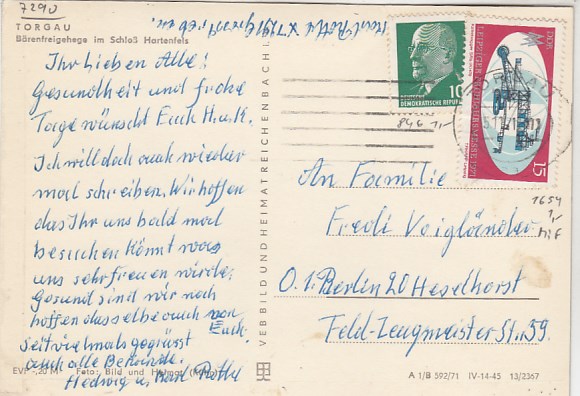 7290
TORGAU
Bärenfreigehege im Schloß Hartenfels
Ihr Lieben Alle!
Gesundheit und frohe
Tage wünscht Euch H.u.K.
Ich will doch auch wieder
mal schreiben. Wir hoffen
das Ihr uns bald mal
besuchen könnt was
uns sehr freuen würde.
Gesund sind wir noch
hoffen dasselbe auch von
Euch.
Seit vielmals gegrüsst
auch alle Bekannde.
Hedwig u. Karl
EVP -,20 M Foto: Bild und Heimat
VEB BILD UND HEIMAT REICHENBACH i.
Karl X 7291
10
DEUTSCHE DEMOKRATISCHE REPUBLIK
846 1,-
DDR
LEIPZIGER FRÜHJAHRSMESSE 1971
15
1654
1,-
MiF
An Familie
Fredi Voigländer
O.1. Berlin 20 Heselhorst
Feld-Zeugmeister Str. 59.
A 1/B 592/71 IV-14-45 13/2367